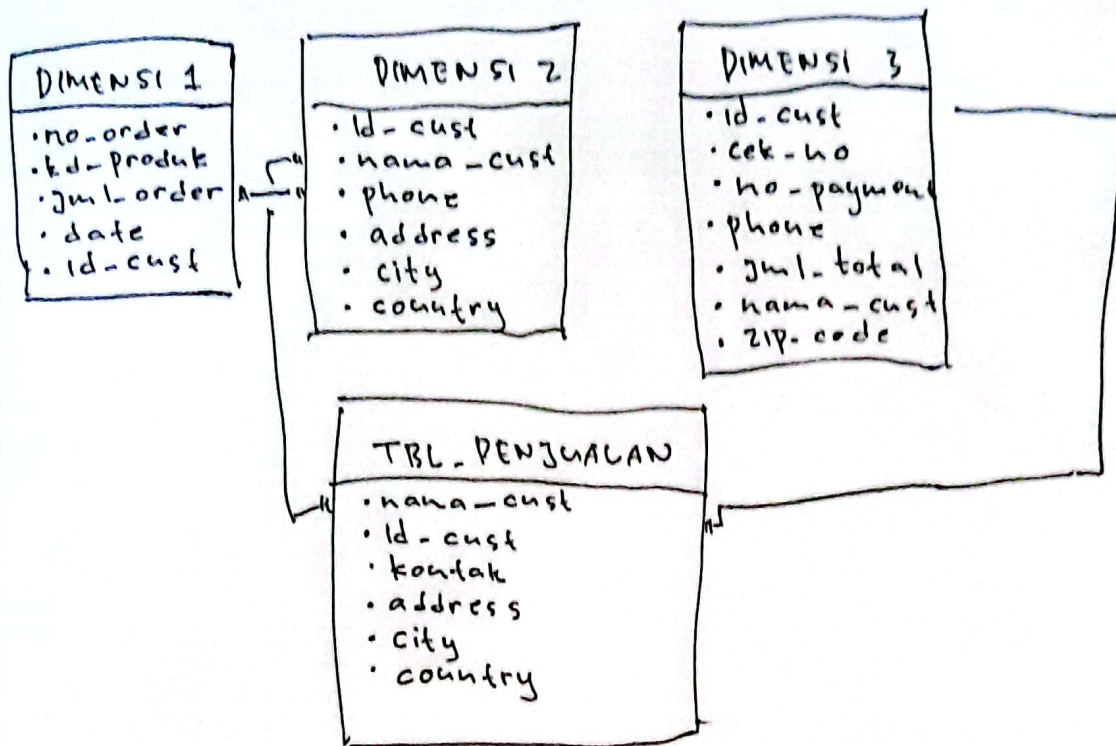 DIMENSI 1
·no_order
·kd_produk
·jml_order
·date
·id_cust
DIMENSI 2
·id_cust
·nama_cust
·phone
·address
·city
·country
DIMENSI 3
·id_cust
·cek_no
·no_payment
·phone
·jml_total
·nama_cust
·zip_code
TBL_PENJUALAN
·nama_cust
·id_cust
·kontak
·address
·city
·country